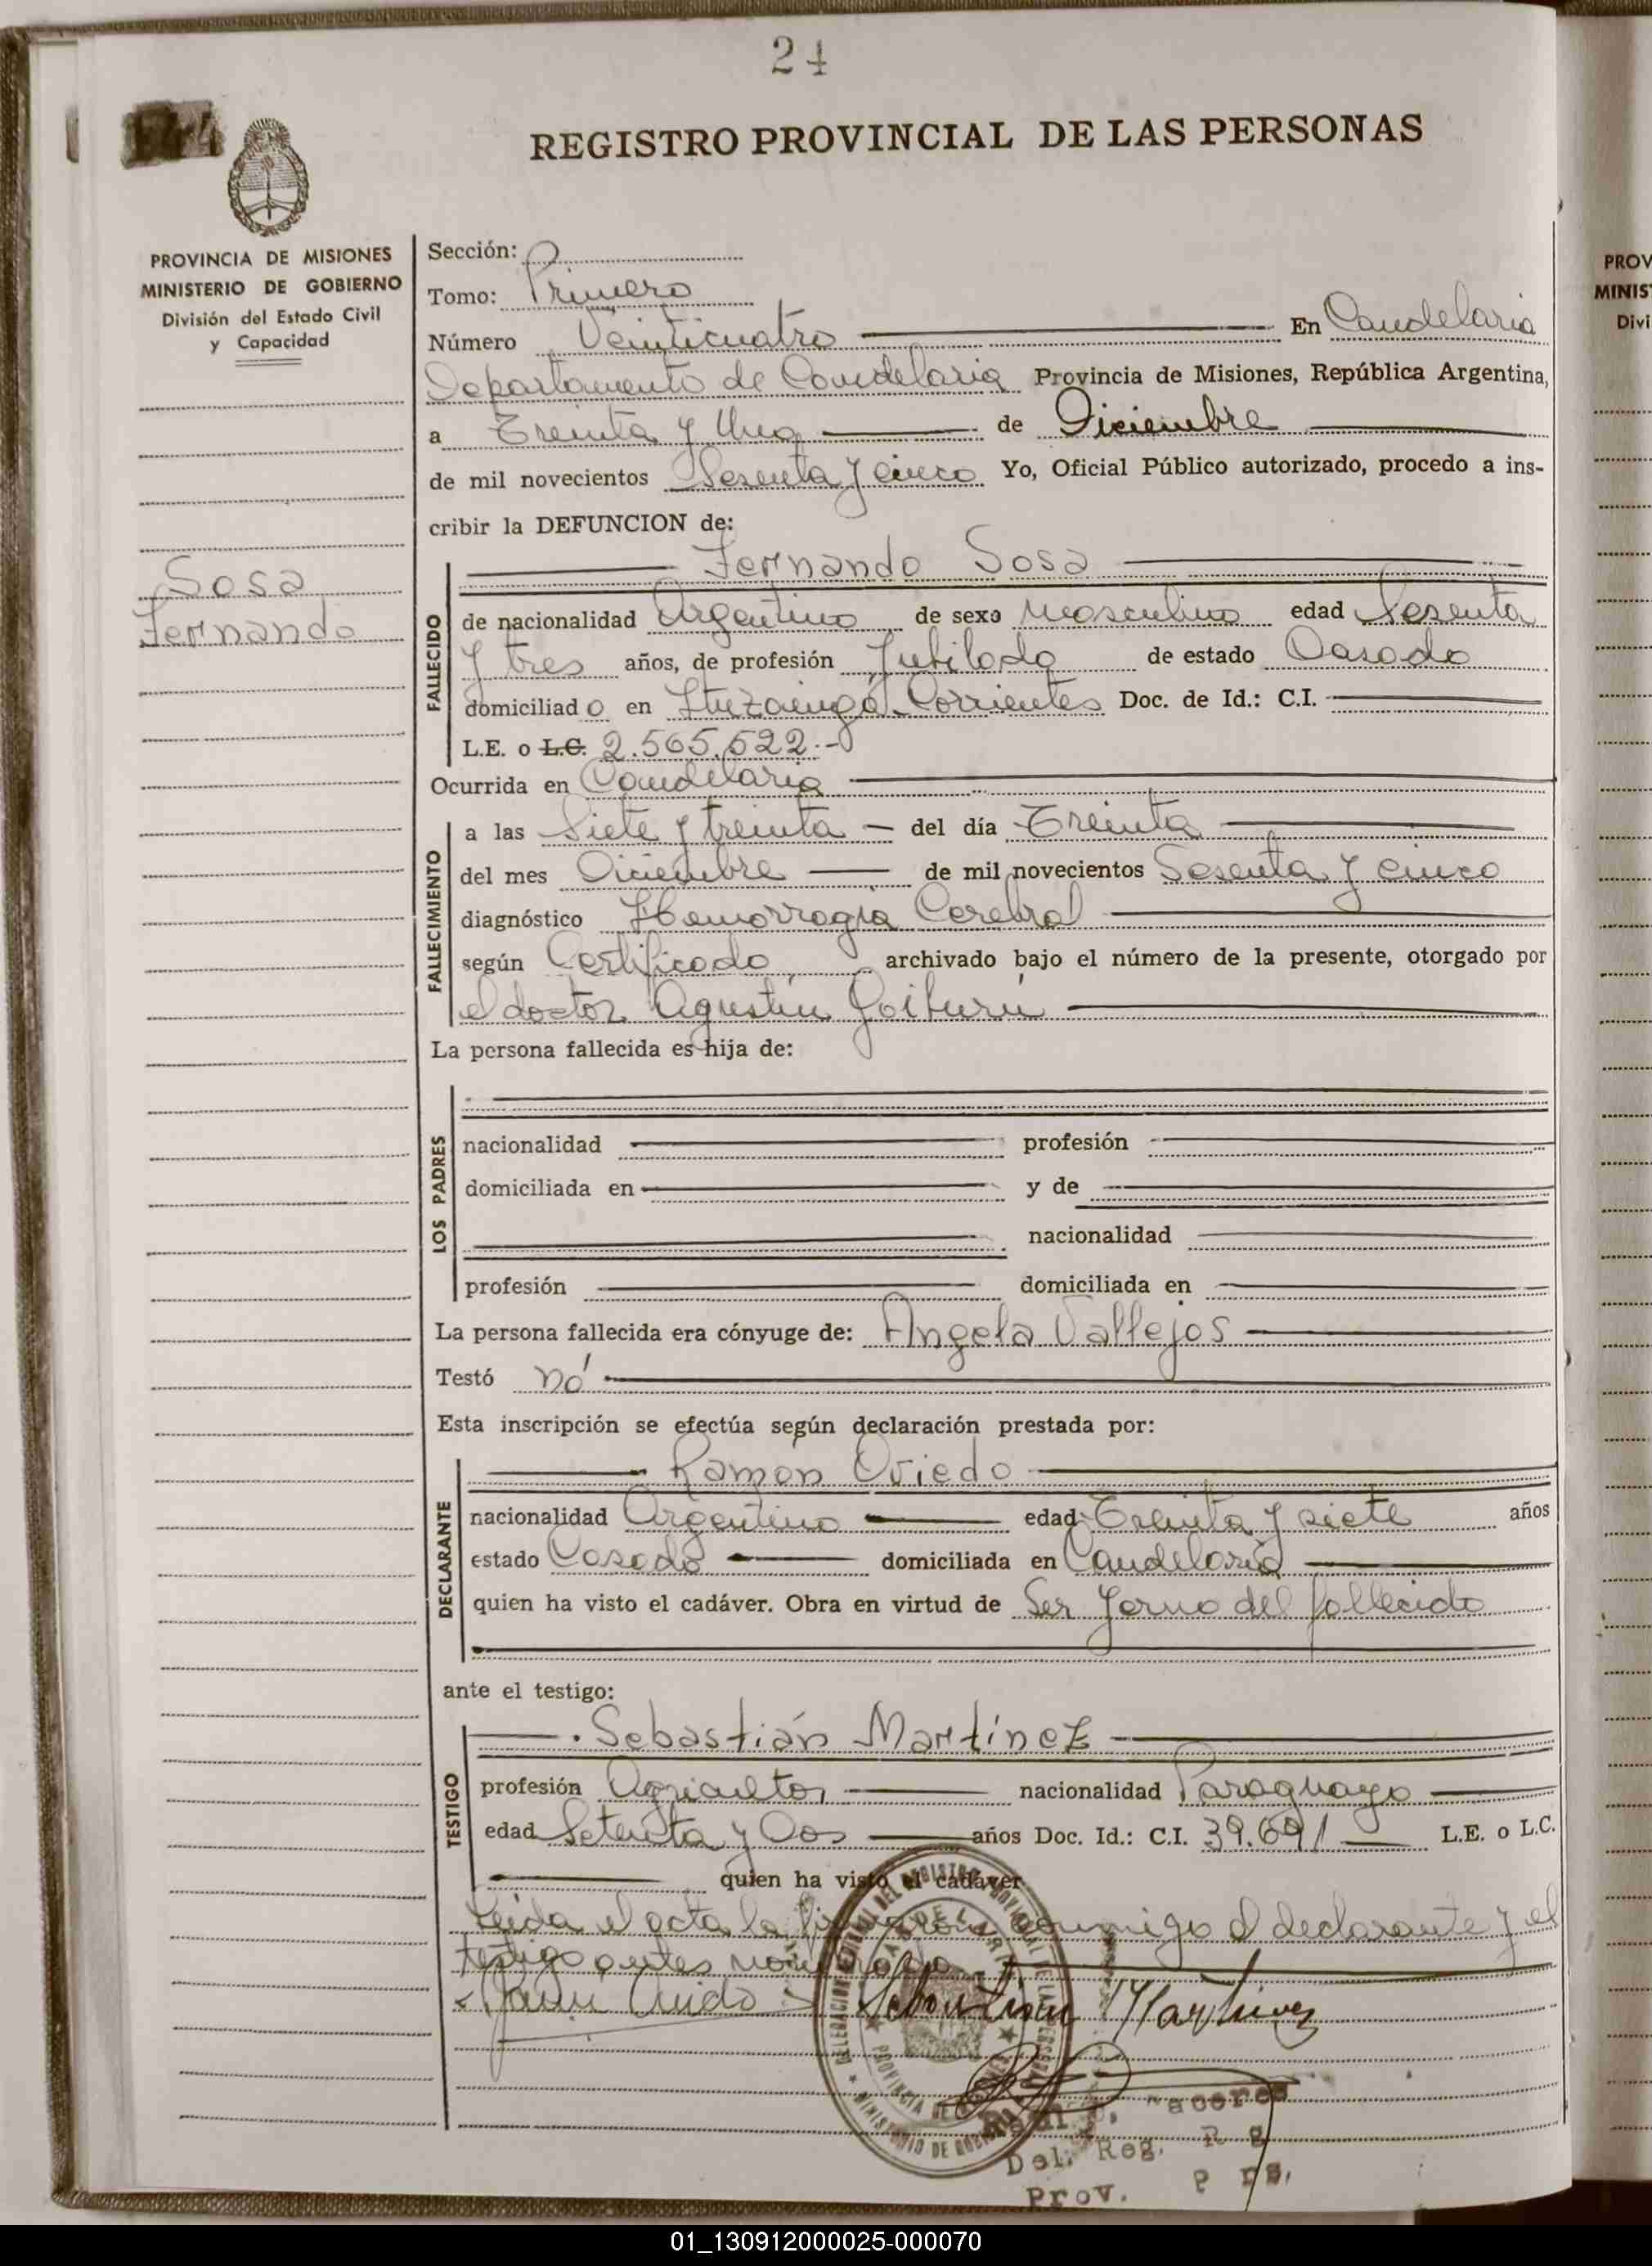 24
REGISTRO PROVINCIAL DE LAS PERSONAS
PROVINCIA DE MISIONES
MINISTERIO DE GOBIERNO
División del Estado Civil
y Capacidad
Sosa
Fernando
Sección:
Tomo: Primero
Número Veinticuatro En Candelaria
Departamento de Candelaria Provincia de Misiones, República Argentina,
a Treinta y Uno de Diciembre
de mil novecientos Sesenta y cinco Yo, Oficial Público autorizado, procedo a ins-
cribir la DEFUNCION de:
Fernando Sosa
FALLECIDO
de nacionalidad Argentino de sexo Masculino edad Sesenta
y tres años, de profesión Jubilado de estado Casado
domiciliado en Ituzaingó Corrientes Doc. de Id.: C.I.
L.E. o L.C. 2.565.522.-
Ocurrida en Candelaria
FALLECIMIENTO
a las Siete y treinta del día Treinta
del mes Diciembre de mil novecientos Sesenta y cinco
diagnóstico Hemorragia Cerebral
según Certificado archivado bajo el número de la presente, otorgado por
el doctor Agustín Goiburú
La persona fallecida es hija de:
LOS PADRES
nacionalidad profesión
domiciliada en y de
nacionalidad
profesión domiciliada en
La persona fallecida era cónyuge de: Angela Vallejos
Testó nó
Esta inscripción se efectúa según declaración prestada por:
Ramon Oviedo
DECLARANTE
nacionalidad Argentino edad Treinta y siete años
estado Casado domiciliada en Candelaria
quien ha visto el cadáver. Obra en virtud de Ser yerno del fallecido
ante el testigo:
Sebastián Martínez
TESTIGO
profesión Agricultor nacionalidad Paraguayo
edad Setenta y Dos años Doc. Id.: C.I. 39.691 L.E. o L.C.
quien ha visto el cadáver
Leida el acta la firmaron conmigo el declarante y el
testigo antes nombrado
Sebastian Martinez
CANDELARIA
PROVINCIA DE MISIONES
MINISTERIO DE GOBIERNO
Del. Reg.
Prov.
PROV
MINIS
Divi
01_130912000025-000070